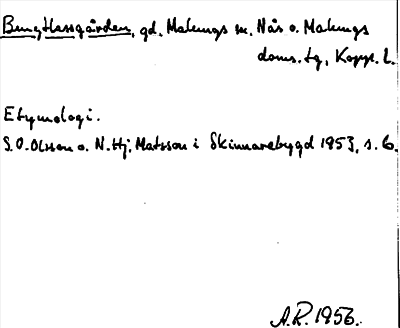 Bengtlassgården, gd. Malungs sn. Nås o. Malungs
doms. tg, Kopp. l.
Etymologi.
S.O. Olsson o. N. Hj. Matsson i Skinnarebygd 1953, s. 6.
A.R. 1956.